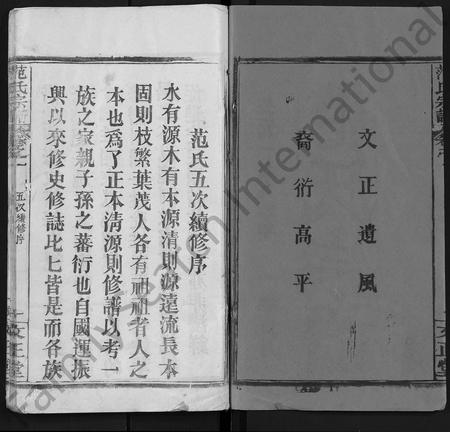 文正遺風
裔衍高平
范氏五次續修序
水有源木有本源清則源遠流長本
固則枝繁葉茂人各有祖祖者人之
本也爲了正本清源則修譜以考一
族之家親子孫之蕃衍也自國運振
興以來修史修誌比匕皆是而各族
范氏宗譜卷之一
五次續修序
文正堂